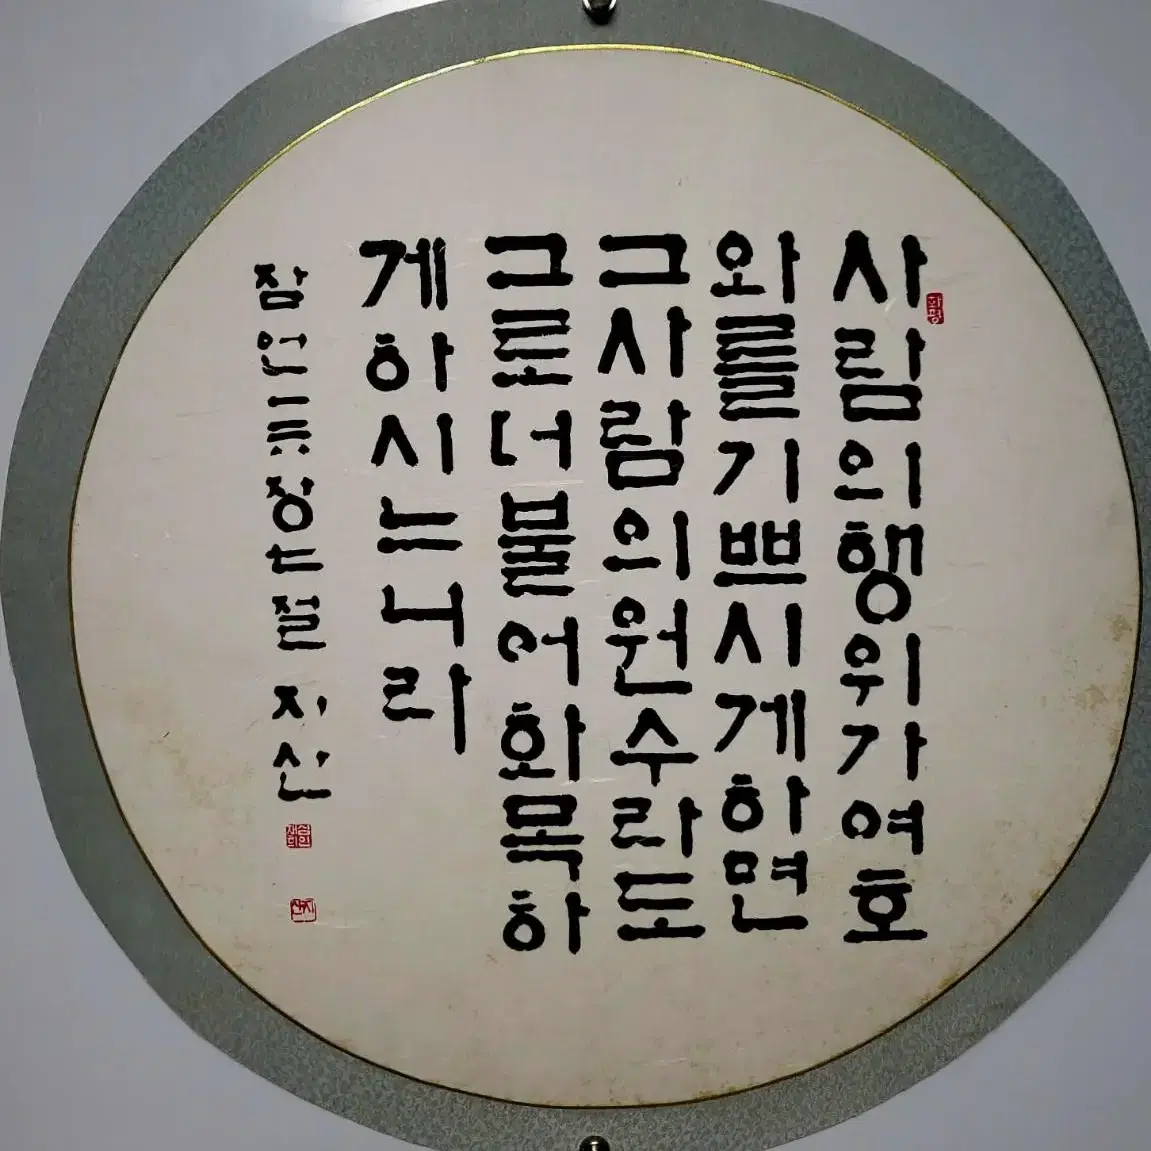 사람의행위가여호
와를기쁘시게하면
그사람의원수라도
그로더불어화목하
게하시느니라
잠언一六장七절 지산
화평